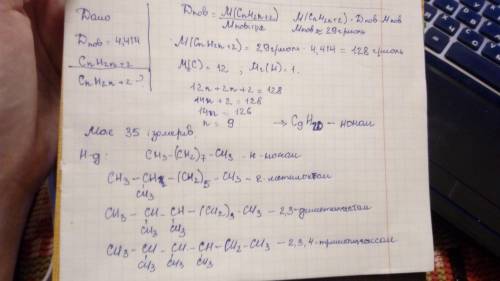 Дано
Dпов = 4,414
CnH2n+2
CnH2n+2 - ?
Dпов = M(CnH2n+2) / Mповітря
M(CnH2n+2) = Dпов · Mпов
Mпов ≈ 29 г/моль
M(CnH2n+2) = 29 г/моль · 4,414 = 128 г/моль
Mr(C) = 12 , Mr(H) = 1.
12n + 2n + 2 = 128
14n + 2 = 128
14n = 126
n = 9 → C9H20 - нонан
Має 35 ізомерів
Н-д: CH3 - (CH2)7 - CH3 - н-нонан
CH3 - CH - (CH2)5 - CH3 - 2-метилоктан
CH3
CH3 - CH - CH - (CH2)3 - CH3 - 2,3-диметилгептан
CH3 CH3
CH3 - CH - CH - CH - CH2 - CH3 - 2,3,4-триметилгексан
CH3 CH3 CH3